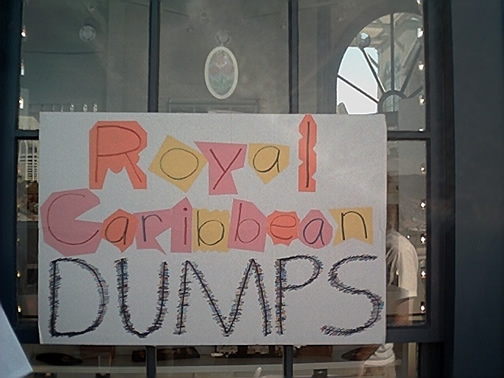 Royal
Caribbean
DUMPS